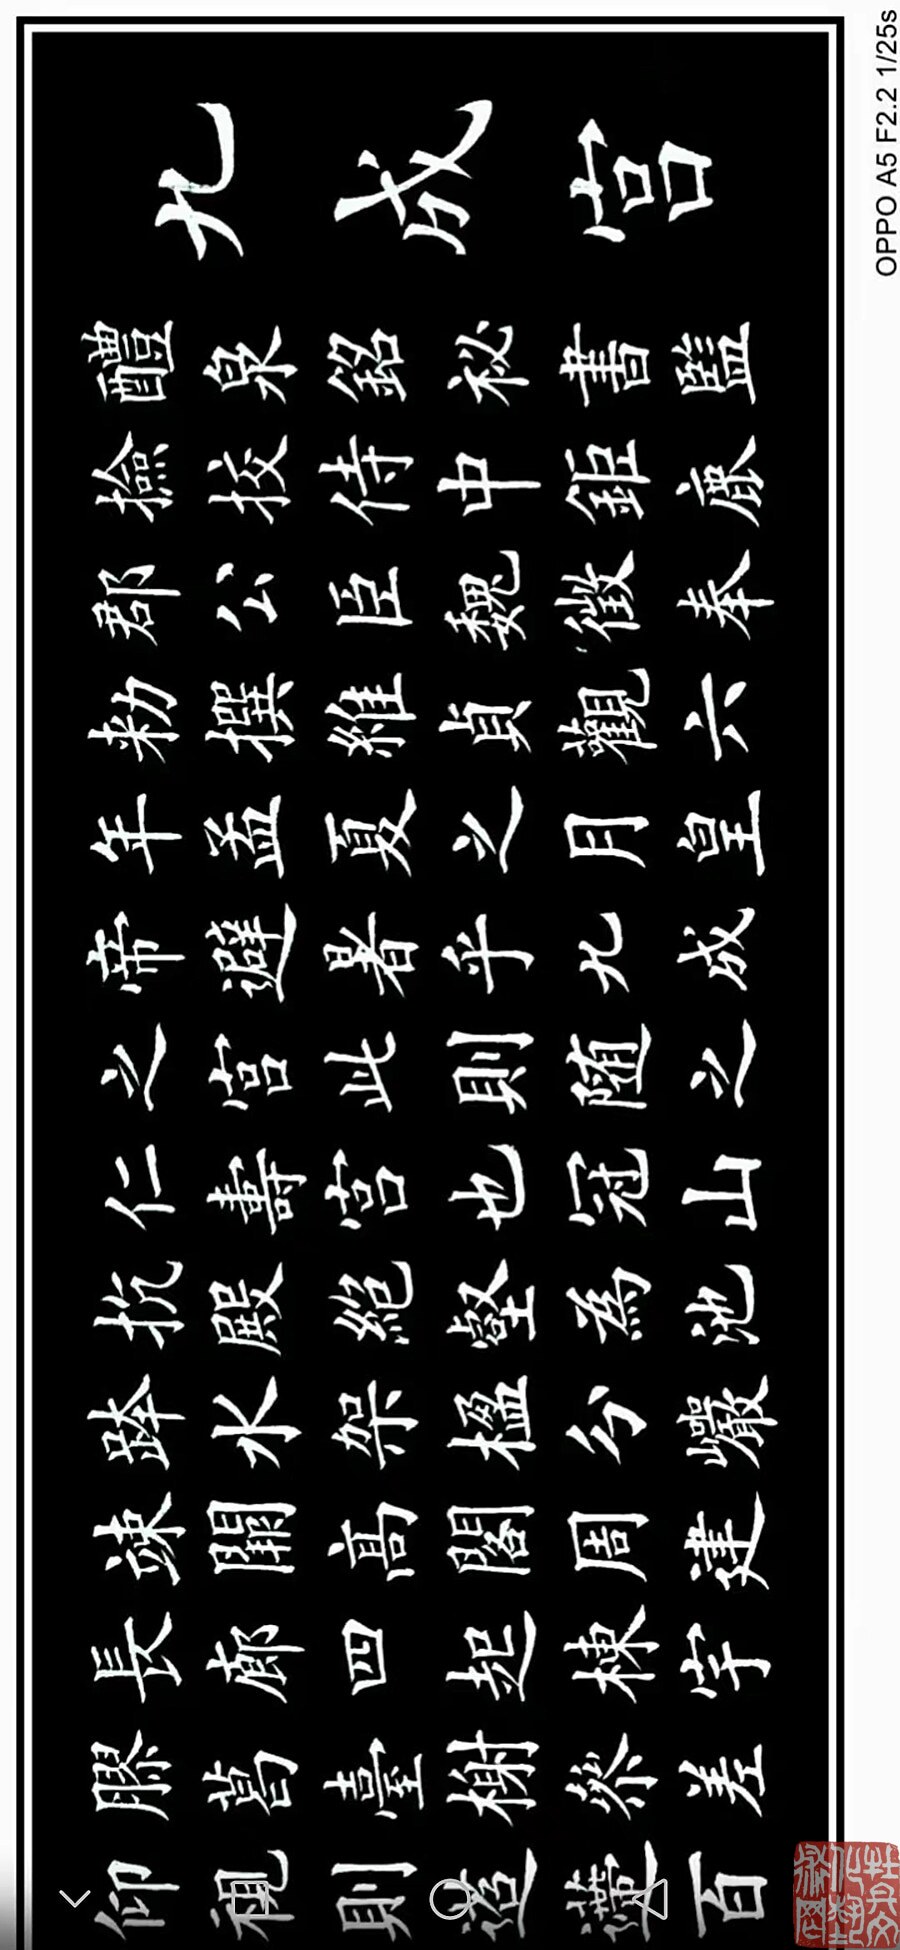 九成宮
醴泉銘祕書監
撿挍侍中鉅鹿
郡公臣魏徵奉
勑撰維貞觀六
年孟夏之月皇
帝避暑乎九成
之宮此則随之
仁壽宮也冠山
抗殿絕壑為池
跨水架楹分巖
竦闕高閣周建
長廊四起棟宇
膠葛臺榭參差
仰視則迢遰百
OPPO A5 F2.2 1/25s